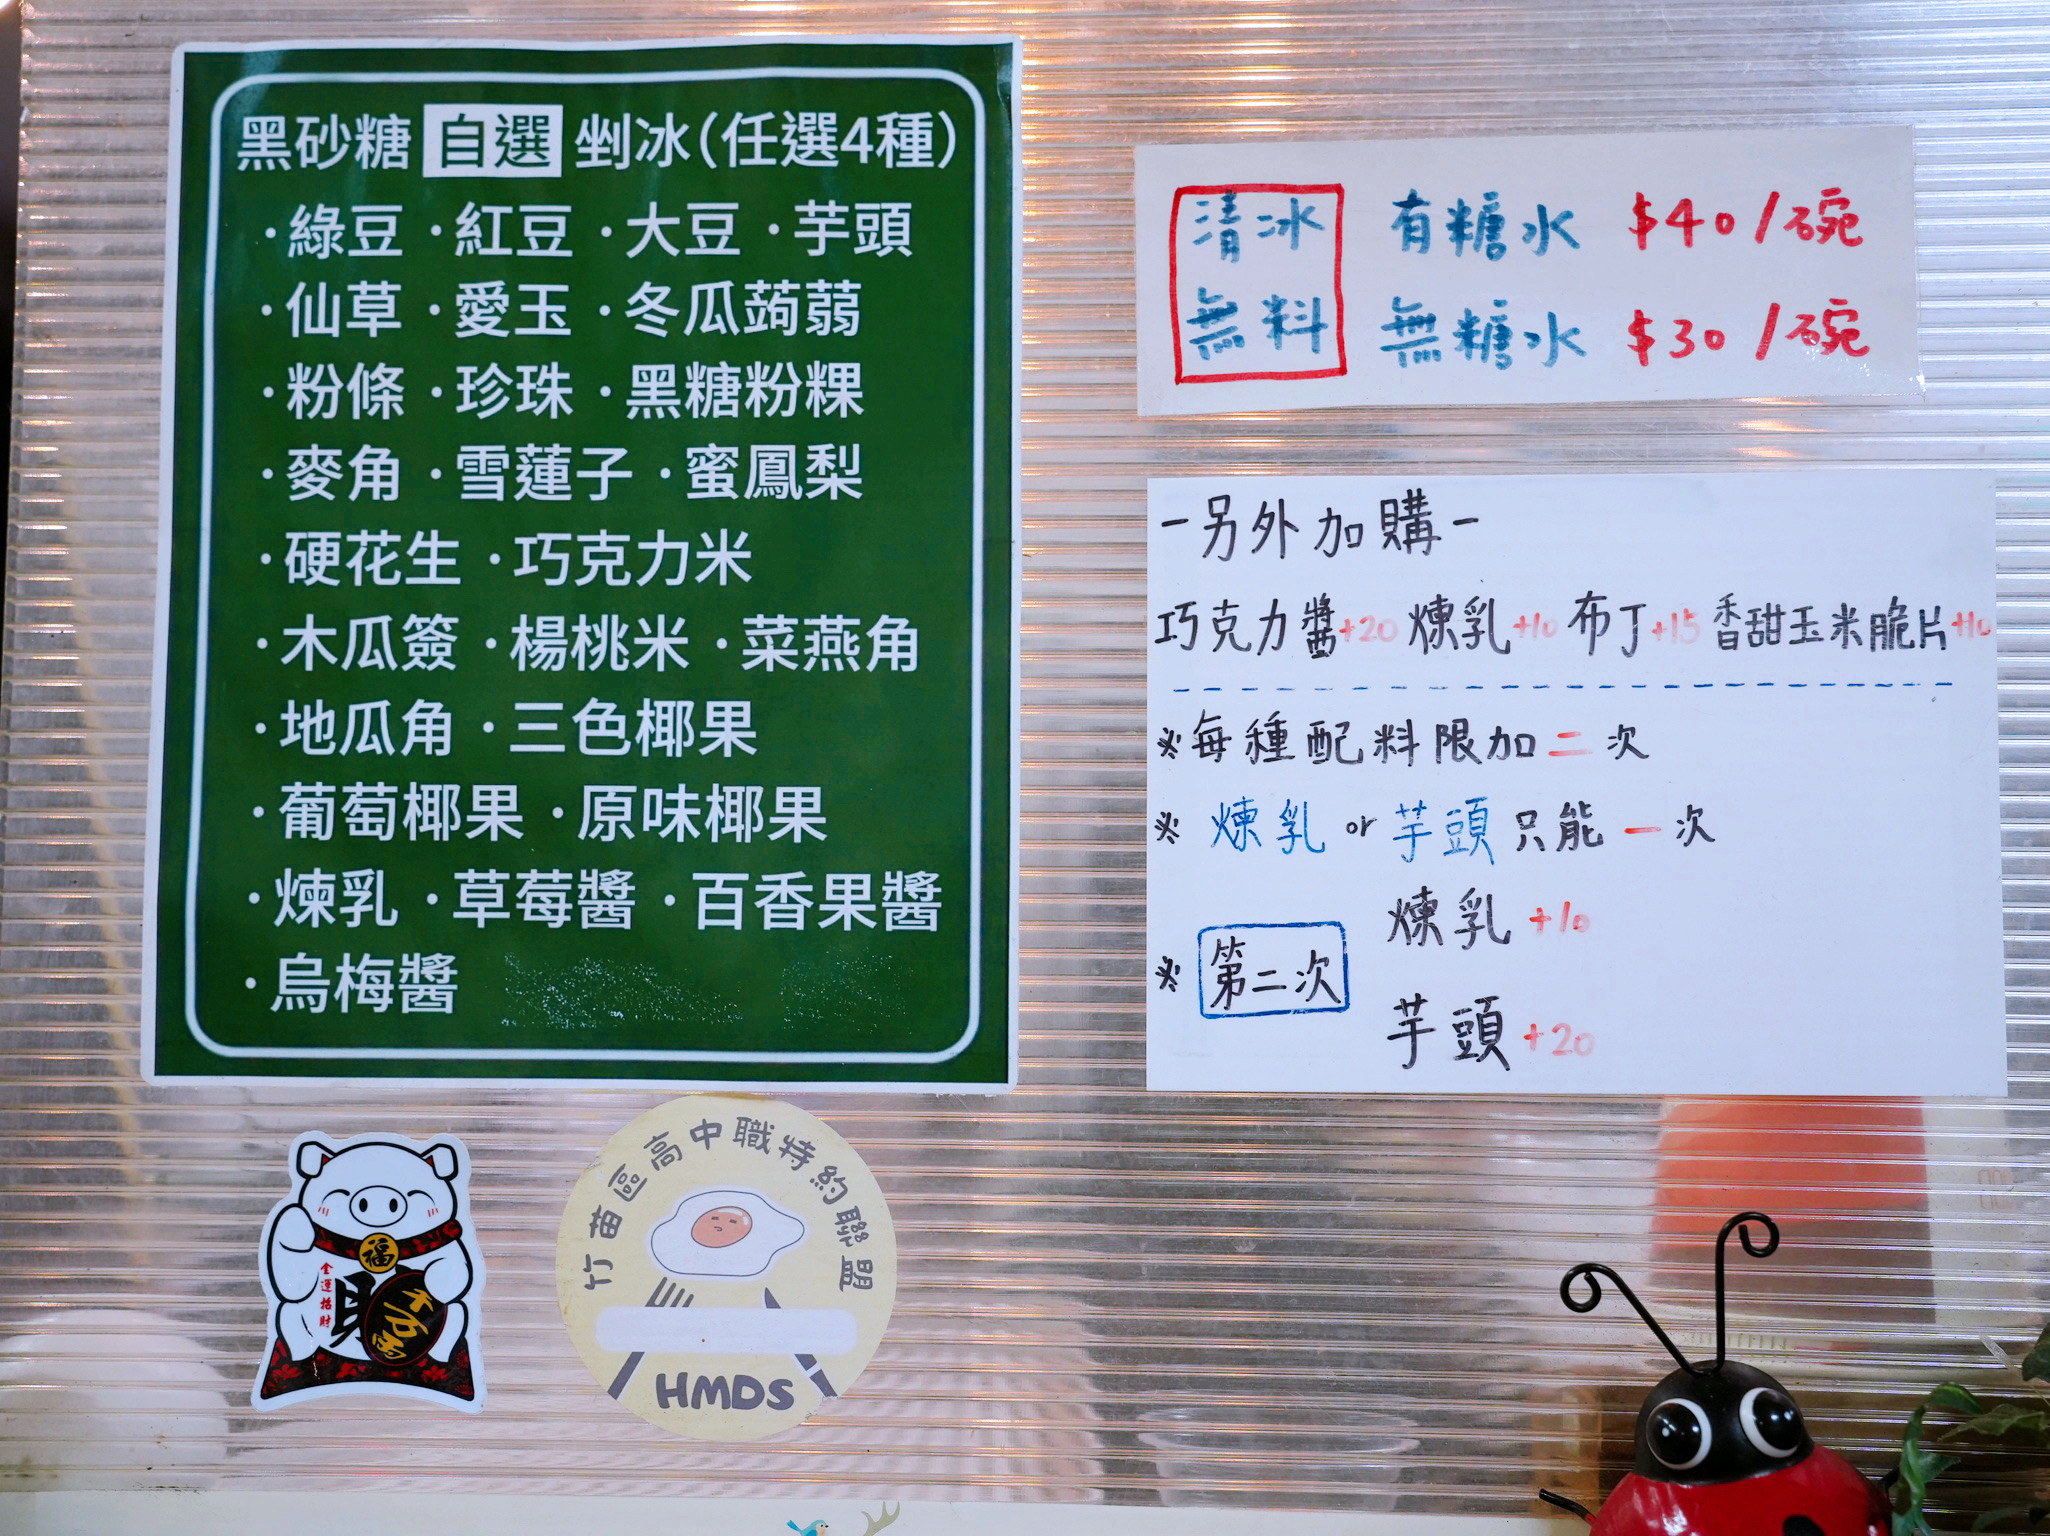 黑砂糖 自選 剉冰(任選4種)
·綠豆 ·紅豆 ·大豆 ·芋頭
·仙草 ·愛玉 ·冬瓜蒟蒻
·粉條 ·珍珠 ·黑糖粉粿
·麥角 ·雪蓮子 ·蜜鳳梨
·硬花生 ·巧克力米
·木瓜簽 ·楊桃米 ·菜燕角
·地瓜角 ·三色椰果
·葡萄椰果 ·原味椰果
·煉乳 ·草莓醬 ·百香果醬
·烏梅醬
清冰 有糖水 $40/碗
無料 無糖水 $30/碗
-另外加購-
巧克力醬+20 煉乳+10 布丁+15 香甜玉米脆片+10
※每種配料限加二次
※ 煉乳 or 芋頭 只能一次
煉乳 +10
※ 第二次
芋頭 +20
福
金運招財
財
千万両
竹苗區高中職特約聯盟
HMDS